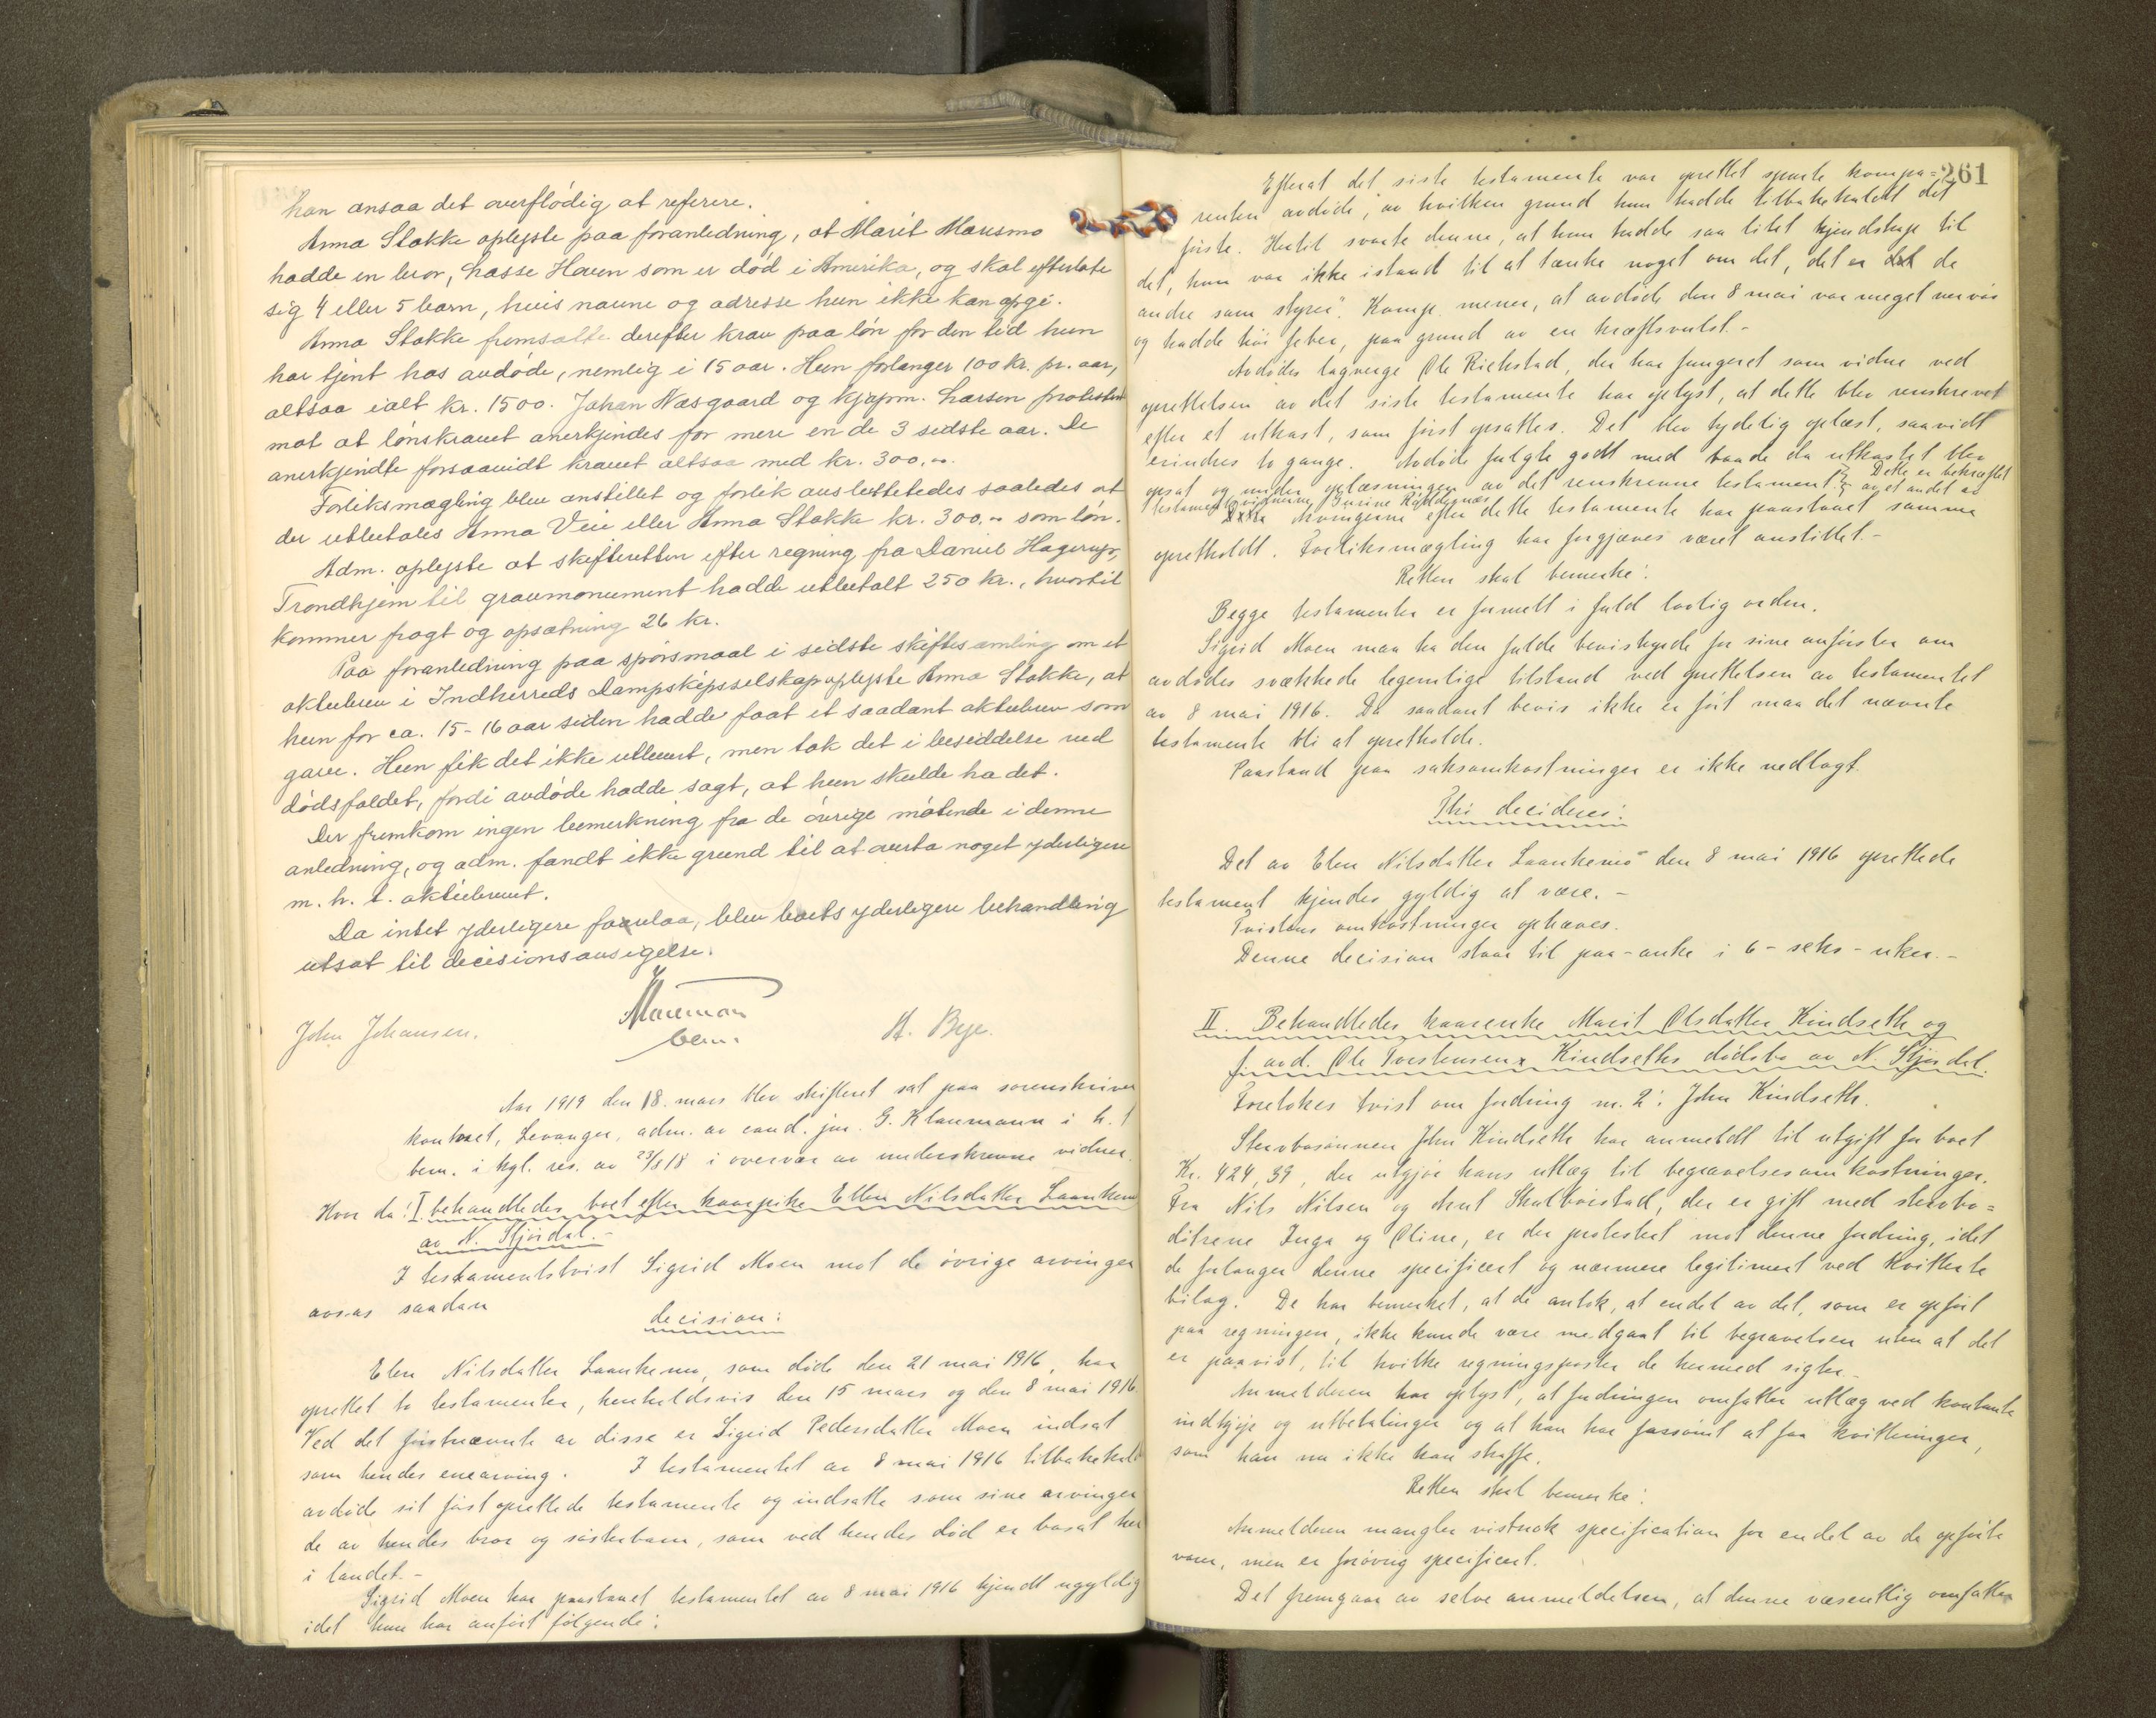 han ansaa det overflödig at referere.
Anna Stokke oplyste paa foranledning, at Marit Mausmo
hadde en bror, Lasse Hauen som er död i Amerika, og skal efterlate
sig 4 eller 5 barn, hvis navne og adresse hun ikke kan opgi.
Anna Stokke fremsatte derefter krav paa lön for den tid hun
har tjent hos avdöde, nemlig i 15 aar. Hun forlanger 100 kr. pr. aar,
altsaa ialt kr. 1500. Johan Næsgaard og kjøpm. Larsen protesterte
mot at lönskravet anerkjendes for mere en de 3 sidste aar. De
anerkjendte forsaavidt kravet altsaa med kr. 300,-.
Forliksmægling blev anstillet og forlik avsluttetedes saaledes at
der utbetales Anna Veie eller Anna Stokke kr. 300,- som lön.
Adm. oplyste at skifteretten efter regning fra Daniel Hagerup,
Trondhjem til gravmonument hadde utbetalt 250 kr., hvortil
kommer fragt og opsætning 26 kr.
Paa foranledning paa spörsmaal i sidste skiftesamling om et
aktiebrev i Indherreds Dampskipsselskap oplyste Anna Stokke, at
hun for ca. 15-16 aar siden hadde faat et saadant aktiebrev som
gave. Hun fik det ikke utlevert, men tok det i besiddelse ved
dödsfaldet, fordi avdöde hadde sagt, at hun skulde ha det.
Der fremkom ingen bemerkning fra de övrige mötende i denne
anledning, og adm. fandt ikke grund til at averta noget yderligere
m. h. t. aktiebrevet.
Da intet yderligere forelaa, blev boets yderligere behandling
utsat til decisionsavsigelse.
Klaumann
bem.
John Johansen. A. Bye.
Aar 1919 den 18. mars blev skifteret sat paa sorenskriver
kontoret, Levanger, adm. av cand. jur. G. Klaumann i h. t
bem. i kgl. res. av 23/8 18 i overvær av underskrevne vidner.
Hvor da: I. behandledes boet efter kaarpike Ellen Nilsdatter Laankemo
av N. Stjördal.-
I testamentstvist Sigrid Moen mot de övrige arvinger
avsas saadan
decision:
Elen Nilsdatter Laankemo, som döde den 21 mai 1916, har
oprettet to testamenter, henholdsvis den 15 mars og den 8 mai 1916.
Ved det förstnævnte av disse er Sigrid Pedersdatter Moen indsat
som hendes enearving. I testamentet av 8 mai 1916 tilbakekaldt
avdöde sit först oprettede testamente og indsatte som sine arvinger
de av hendes bror og söster barn, som ved hendes död er bosat her
i landet.-
Sigrid Moen har paastaaet testamentet av 8 mai 1916 kjendt ugyldig
idet hun har anfört fölgende:
261
Efterat det siste testamente var oprettet spurte kompa=
renten avdöde, av hvilken grund hun hadde tilbakekaldt det
förste. Hertil svarte denne, at hun hadde saa litet kjendskap til
det, hun var ikke istand til at tænke noget om det, det er det de
andre som styrer". Komp. mener, at avdöde den 8 mai var meget nervös
og hadde höi feber, paa grund av en kræftsvulst.-
Avdödes lagverge Ole Richstad, der har fungeret som vidne ved
oprettelsen av det siste testamente har oplyst, at dette blev renskrevet
efter et utkast, som först opsattes. Det blev tydelig oplæst, saavidt
erindres to gange. Avdöde fulgte godt med baade da utkastet blev
opsat og under oplæsningen av det renskrevne testament. Dette er bekræftet av et andet av
testamentsvidnerne, Gurine
Arvingerne efter dette testamente har paastaaet samme
opretholdt. Forliksmægling har forgjæves været anstillet.-
Retten skal bemerke:
Begge testamenter er formelt i fuld lovlig orden.
Sigrid Moen maa ha den fulde bevisbyrde for sine anförsler om
avdödes svækkede legemlige tilstand ved oprettelsen av testamentet
av 8 mai 1916. Da saadant bevis ikke er fört maa det nævnte
testamente bli at opretholde.
Paastand paa saksomkostninger er ikke nedlagt.
Thi decideres:
Det av Elen Nilsdatter Laankemo den 8 mai 1916 oprettede
testament kjendes gyldig at være.-
Tvistens omkostninger ophæves.
Denne decision staar til paa-anke i 6-seks-uker.-
II. Behandledes kaarenke Marit Olsdatter Kindseth og
f. avd. Ole Torstensens Kindseths dödsbo av N. Stjördal.
Foretokes tvist om fordring nr. 2: John Kindseth.
Stervbosönnen John Kindseth har anmeldt til utgift for boet
Kr. 424,39, der utgjör hans utlæg til begravelsesomkostninger.
Fra Nils Nilsen og Arnt Skatvoistad, der er gift med stervbo=
dötrene Inga og Oline, er der protestert mot denne fordring, idet
de forlanger denne specificert og nærmere legitimert ved kvitterte
bilag. De har bemerket, at de antok, at endel av det, som er opfört
paa regningen, ikke kunde være medgaat til begravelsen uten at det
er paavist, til hvilke regningsposter de hermed sigter.-
Anmelderen har oplyst, at fordringen omfatter utlæg ved kontante
indkjöp og utbetalinger og at han har forsömt at faa kvitteringer,
som han nu ikke kan skaffe.
Retten skal bemerke:
Anmelderen mangler vistnok specification for endel av de opförte
varer, men er forövrig specificert.
Det fremgaar av selve anmeldelsen, at denne væsentlig omfatter